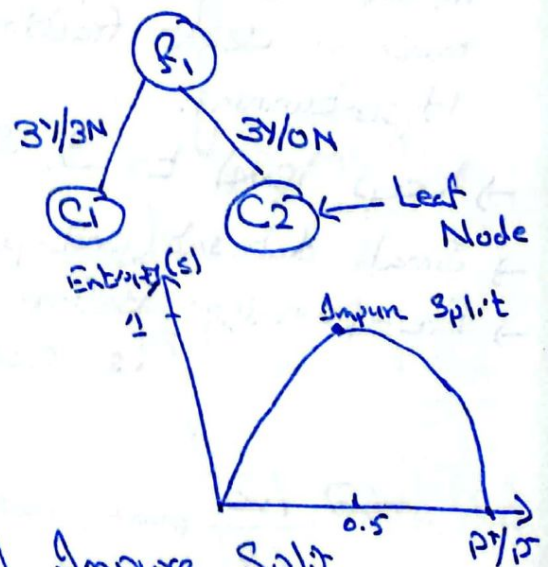 f1
3Y/3N 3Y/0N
C1 C2 ← Leaf
Node
Entropy(s)
1 Impure Split
0.5 P+/P-
Impure Split